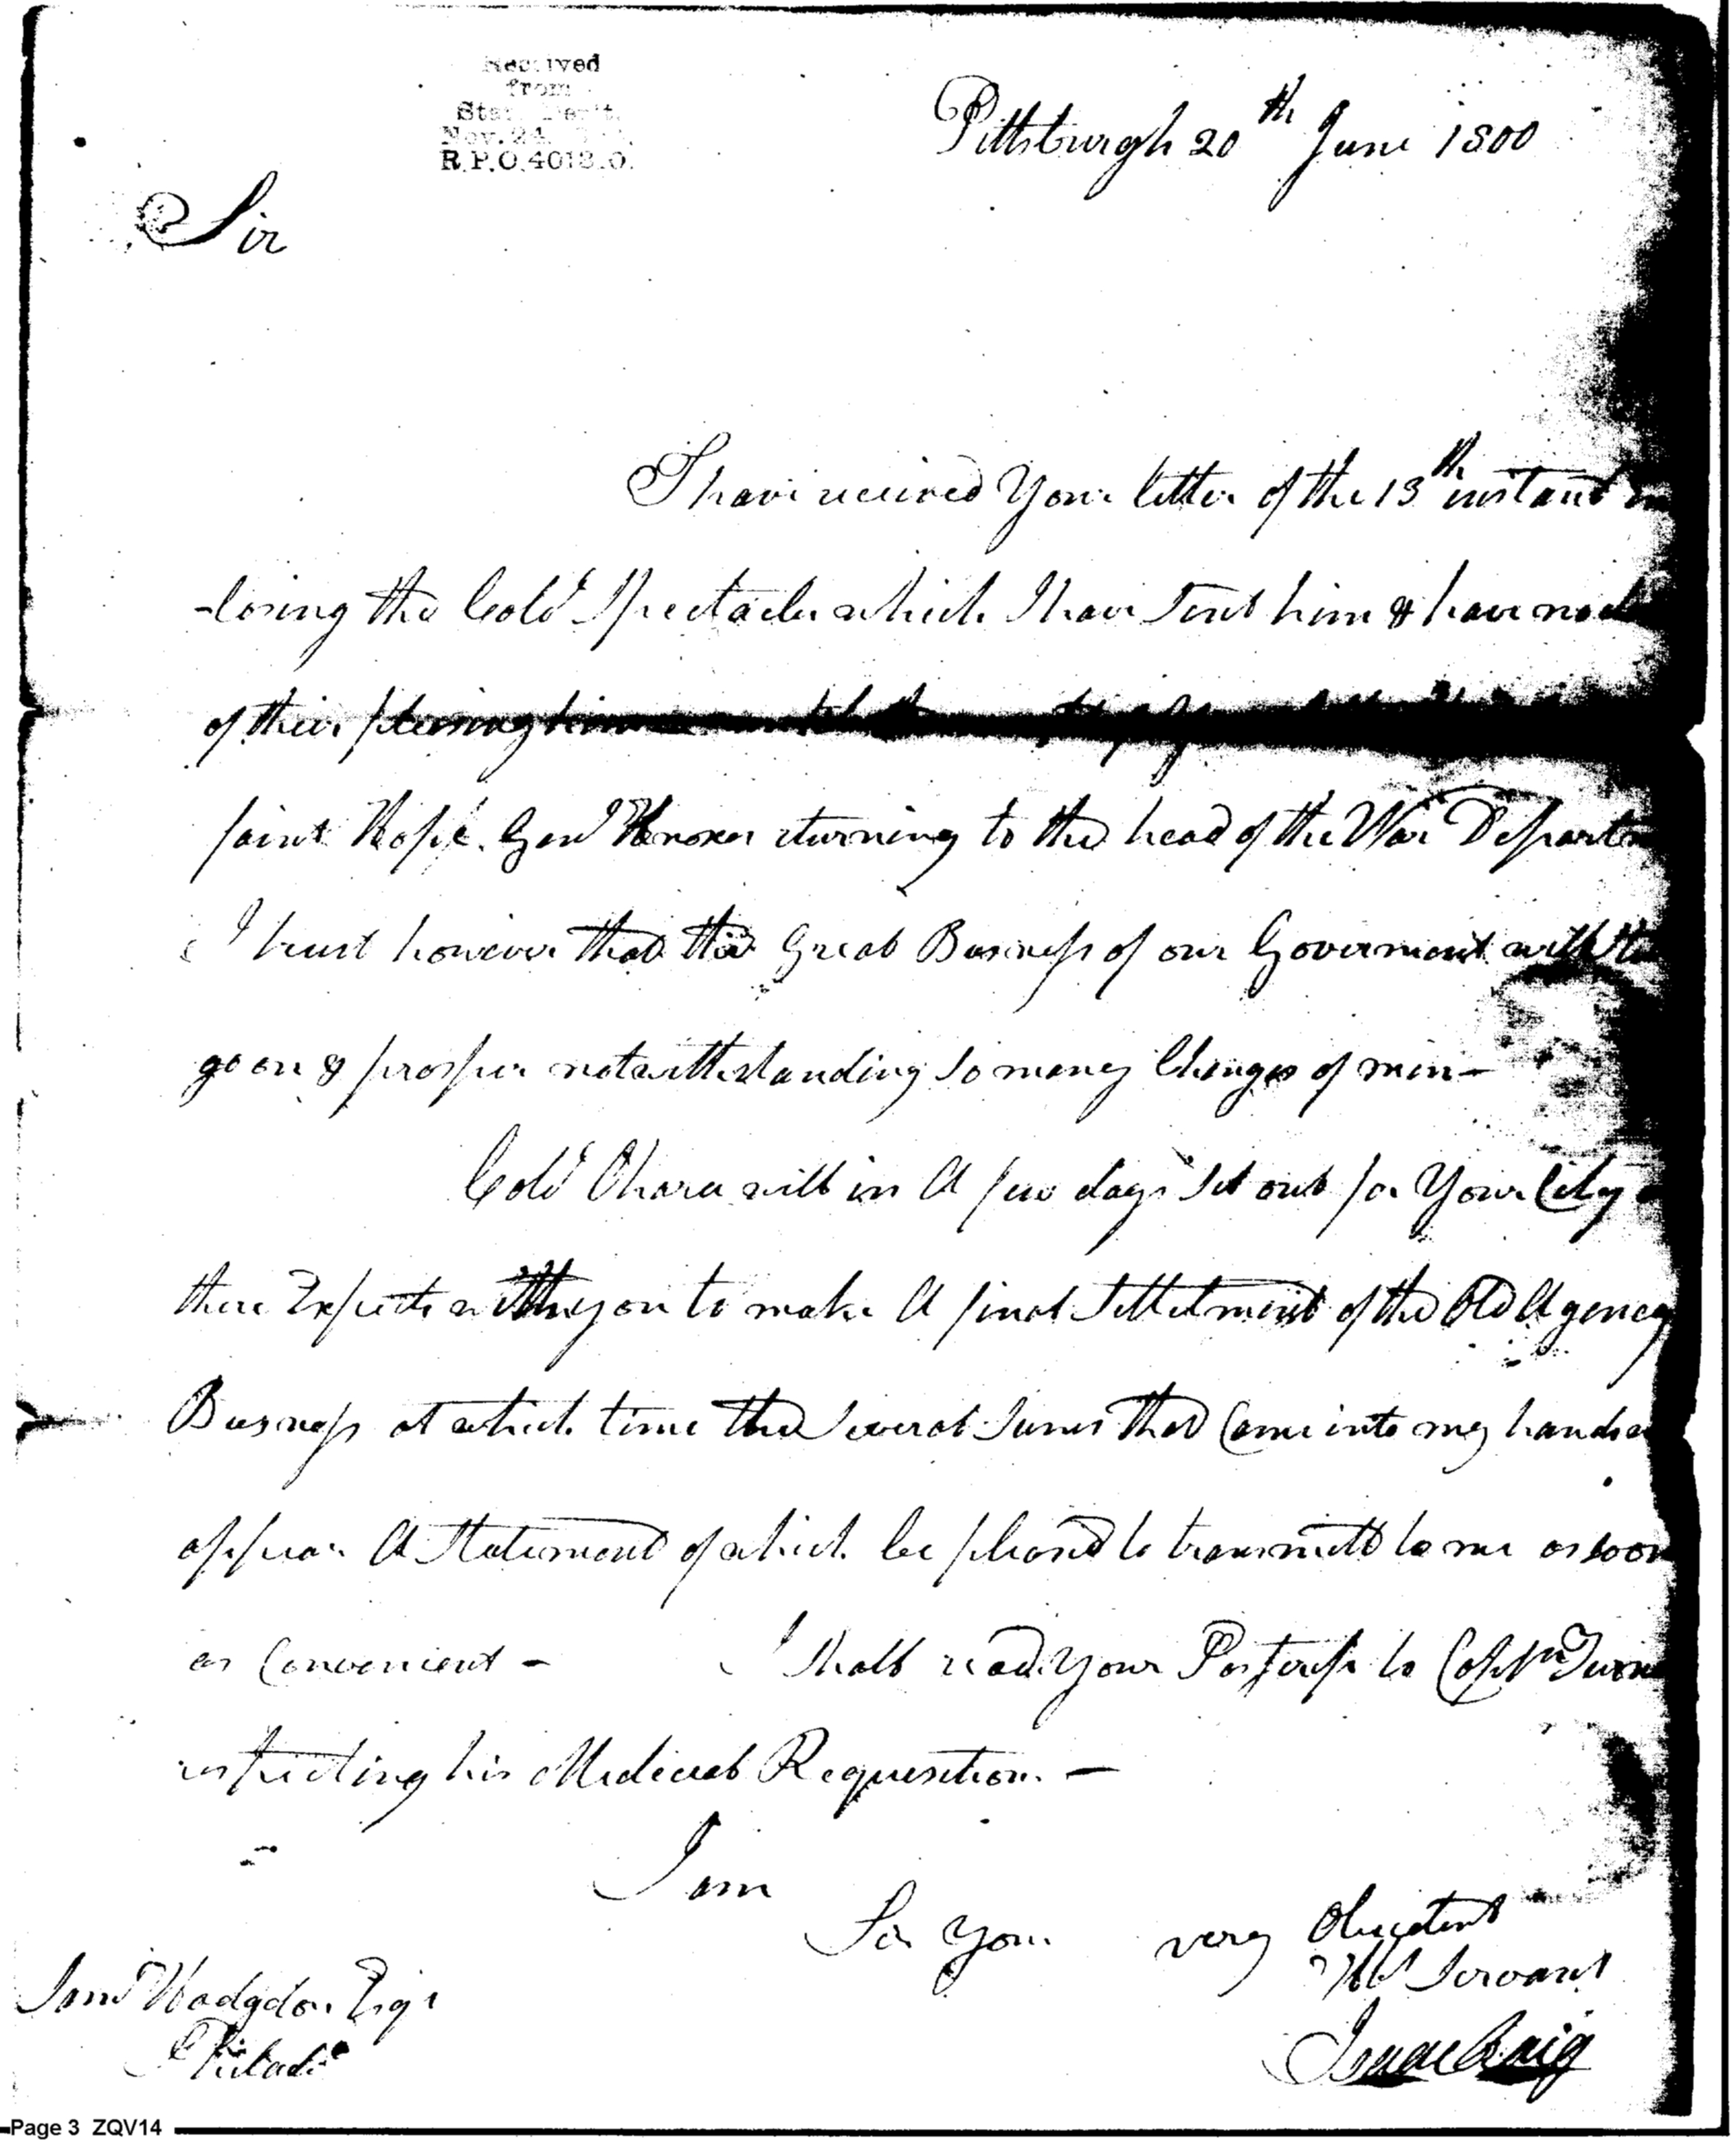 Received
from
State Dep't.
Nov. 24
R.P.O. 4018.0.
Pittsburgh 20th June 1800
Sir
I have received Your letter of the 13th instant
-losing the Colo Spectacles which I have Sent him & have no
of their pleasing him
faint Hope. Genl Knoxes returning to the head of the War Departm
I trust however that the Great Business of our Goverment will
go on & prosper notwithstanding so many Changes of men-
Colo Ohara will in A few days Set out for Your City
there Expects with you to make A final Settelment of the Old Agency
Business at which time the Several Sums that Came into my hands
appear A Statement of which be pleased to transmitt to me as soon
as Convenient - I shall read Your Postcrip to Captn Turn
respecting his Medical Requesition. -
I am
Sir Your very Obedient
Hble Servant
Isaac Craig
Saml Hodgdon Esqr
Philada
Page 3 ZQV14